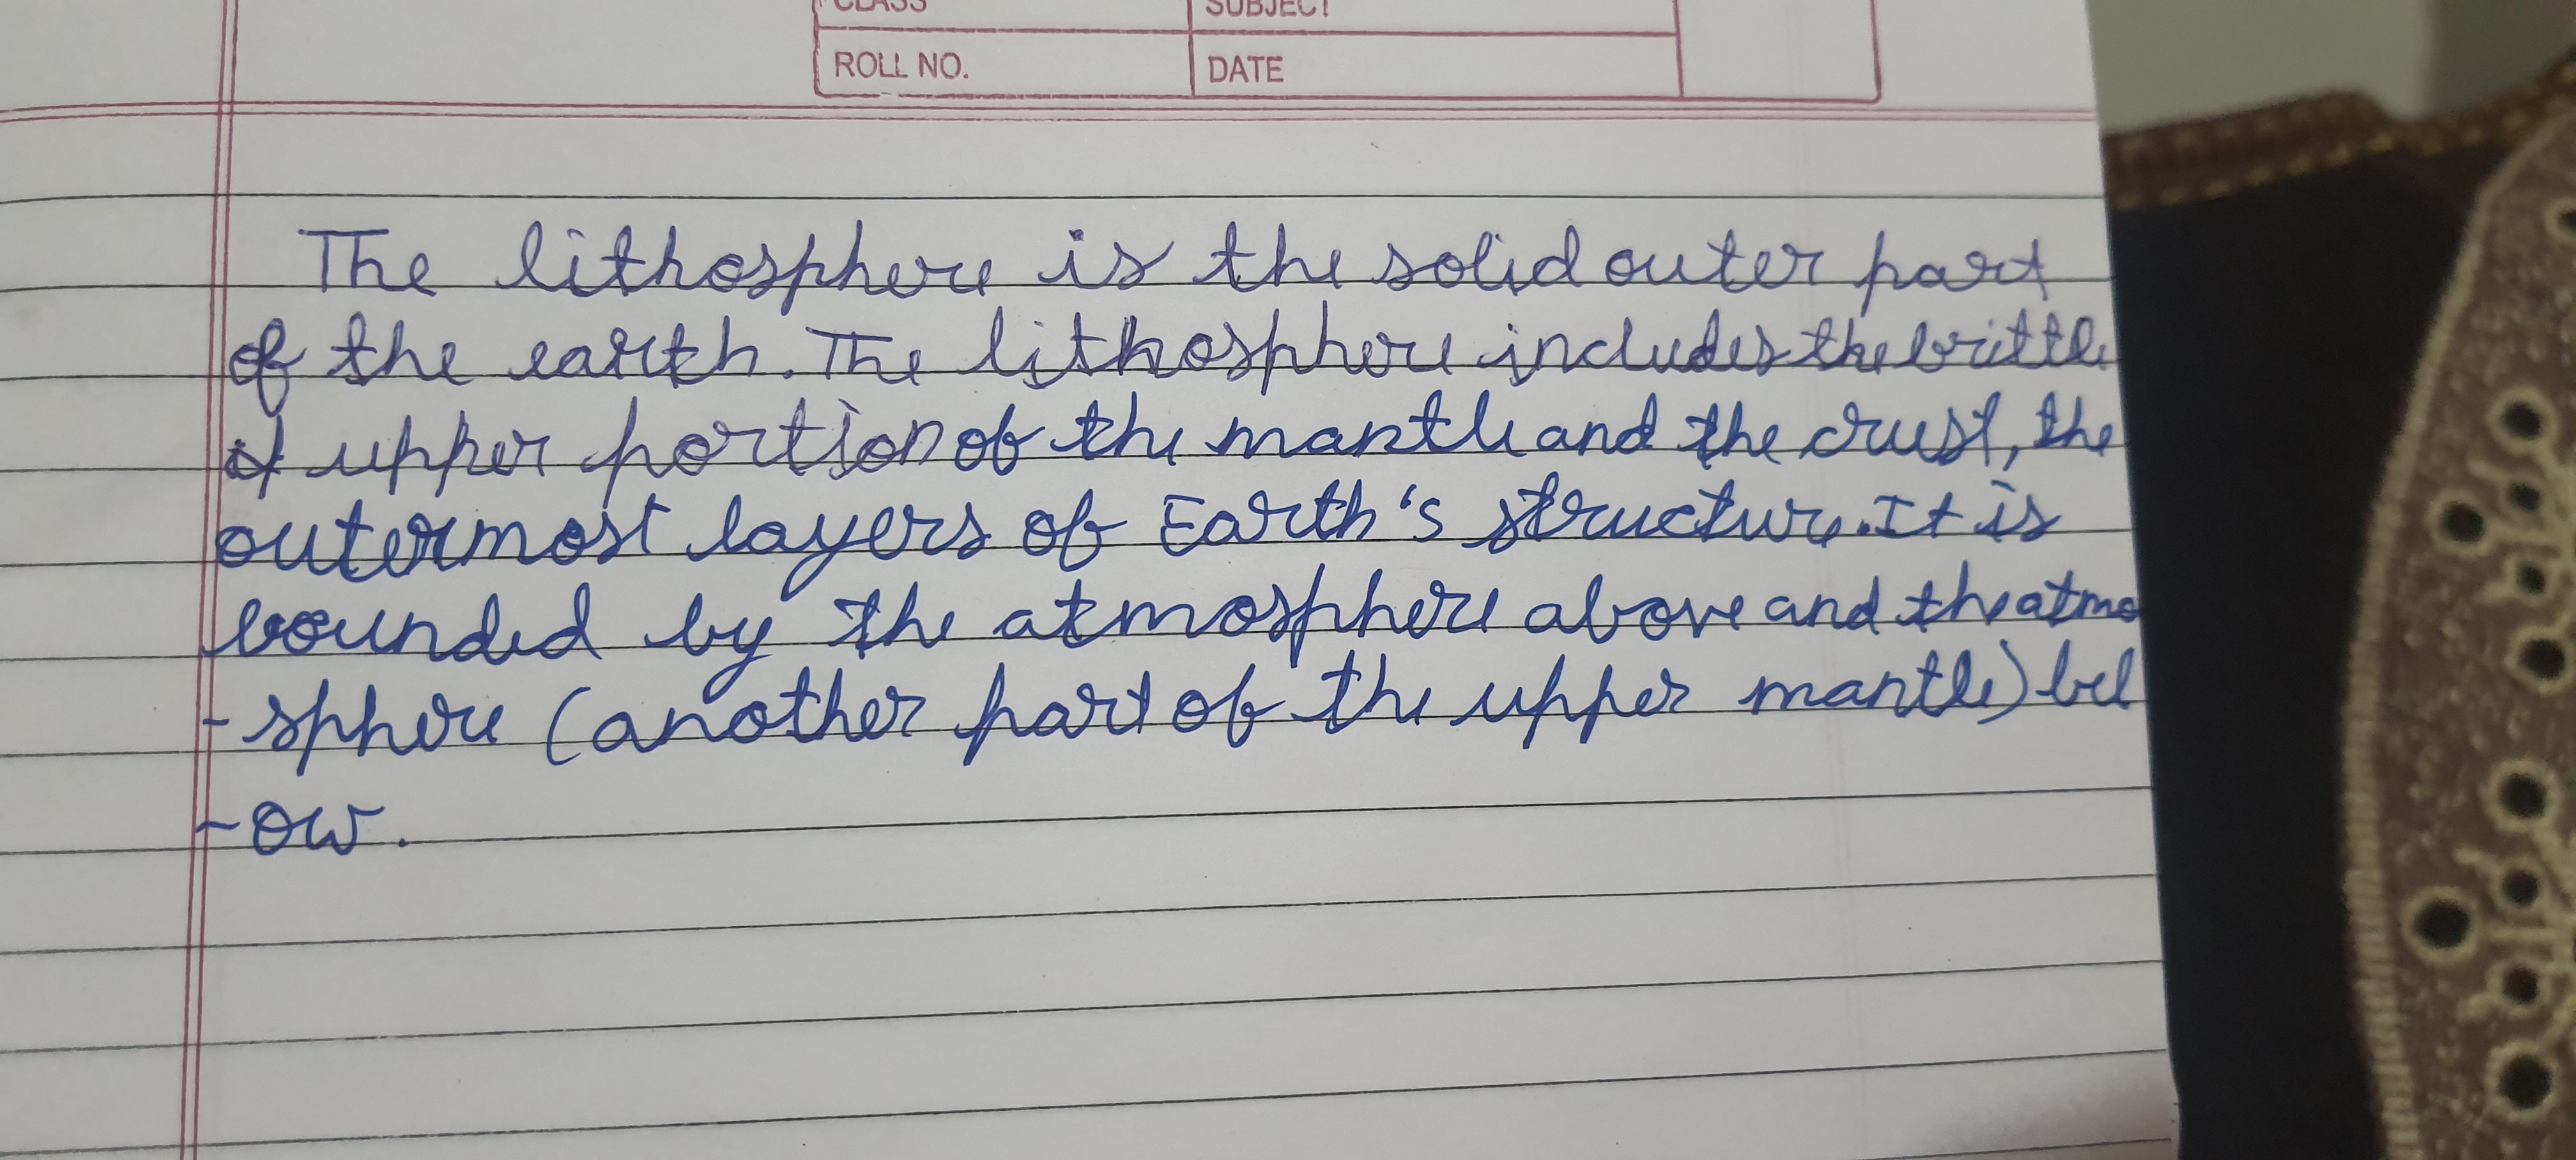 CLASS SUBJECT
ROLL NO. DATE
The lithosphere is the solid outer part
of the earth. The lithosphere includes the brittle
upper portion of the mantle and the crust, the
outermost layers of Earth's structure. It is
bounded by the atmosphere above and the atmo
- sphere (another part of the upper mantle) bel
- ow.